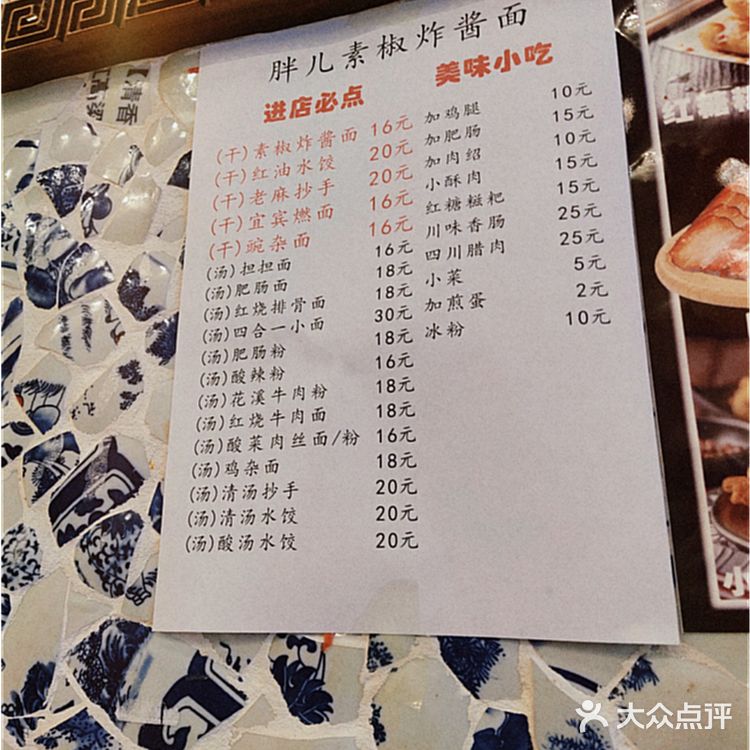 胖儿素椒炸酱面
进店必点
(干)素椒炸酱面 16元
(干)红油水饺 20元
(干)老麻抄手 20元
(干)宜宾燃面 16元
(干)豌杂面 16元
(汤)担担面 16元
(汤)肥肠面 18元
(汤)红烧排骨面 18元
(汤)四合一小面 30元
(汤)肥肠粉 18元
(汤)酸辣粉 16元
(汤)花溪牛肉粉 18元
(汤)红烧牛肉面 18元
(汤)酸菜肉丝面/粉 16元
(汤)鸡杂面 18元
(汤)清汤抄手 20元
(汤)清汤水饺 20元
(汤)酸汤水饺 20元
美味小吃
加鸡腿 10元
加肥肠 15元
加肉绍 10元
小酥肉 15元
红糖糍粑 15元
川味香肠 25元
四川腊肉 25元
小菜 5元
加煎蛋 2元
冰粉 10元
【清香
红糖
小
大众点评